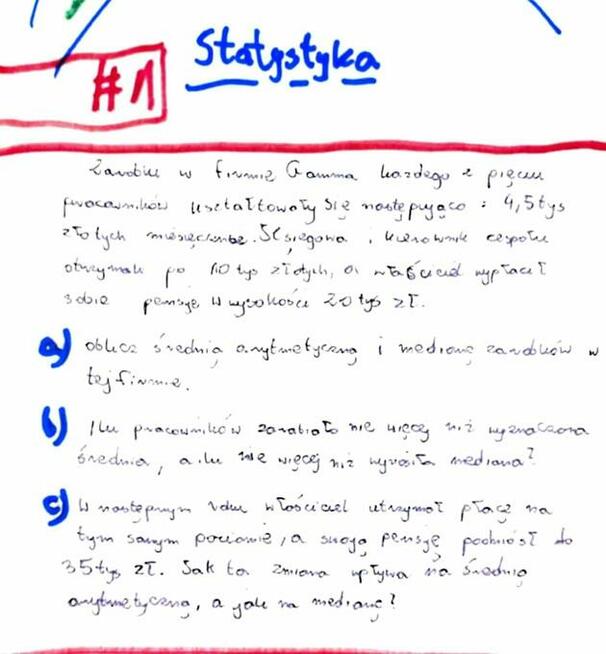 Statystyka
#1
Zarobki w firmie Gamma każdego z pięciu
pracowników kształtowały się następująco: 4,5 tys
złotych miesięcznie. Księgowa i kierownik zespołu
otrzymali po 10 tys złotych, a właściciel wypłacił
sobie pensję w wysokości 20 tys zł.
a) oblicz średnią arytmetyczną i medianę zarobków w
tej firmie.
b) Ilu pracowników zarabiało nie więcej niż wyznaczona
średnia, a ilu nie więcej niż wynosiła mediana?
c) W następnym roku właściciel utrzymał płacę na
tym samym poziomie, a swoją pensję podniósł do
35 tys zł. Jak ta zmiana wpływa na średnią
arytmetyczną, a jak na medianę?